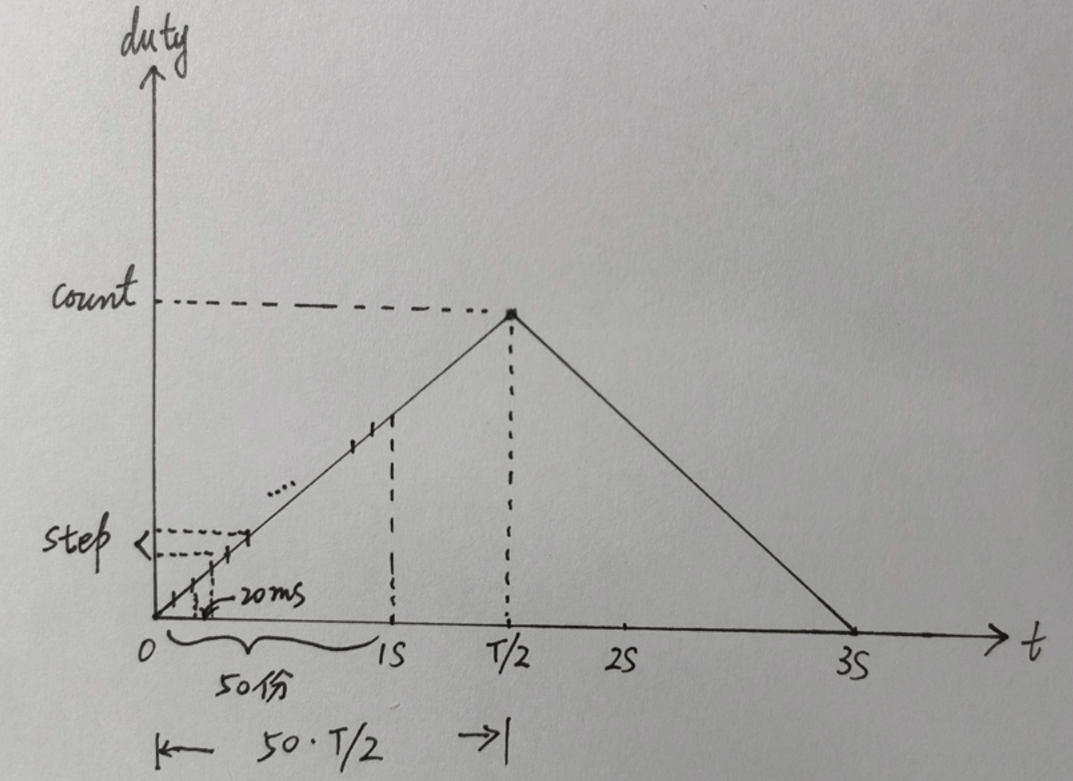 duty
count
step
20ms
0
1S
T/2
2S
3S
t
50份
50·T/2